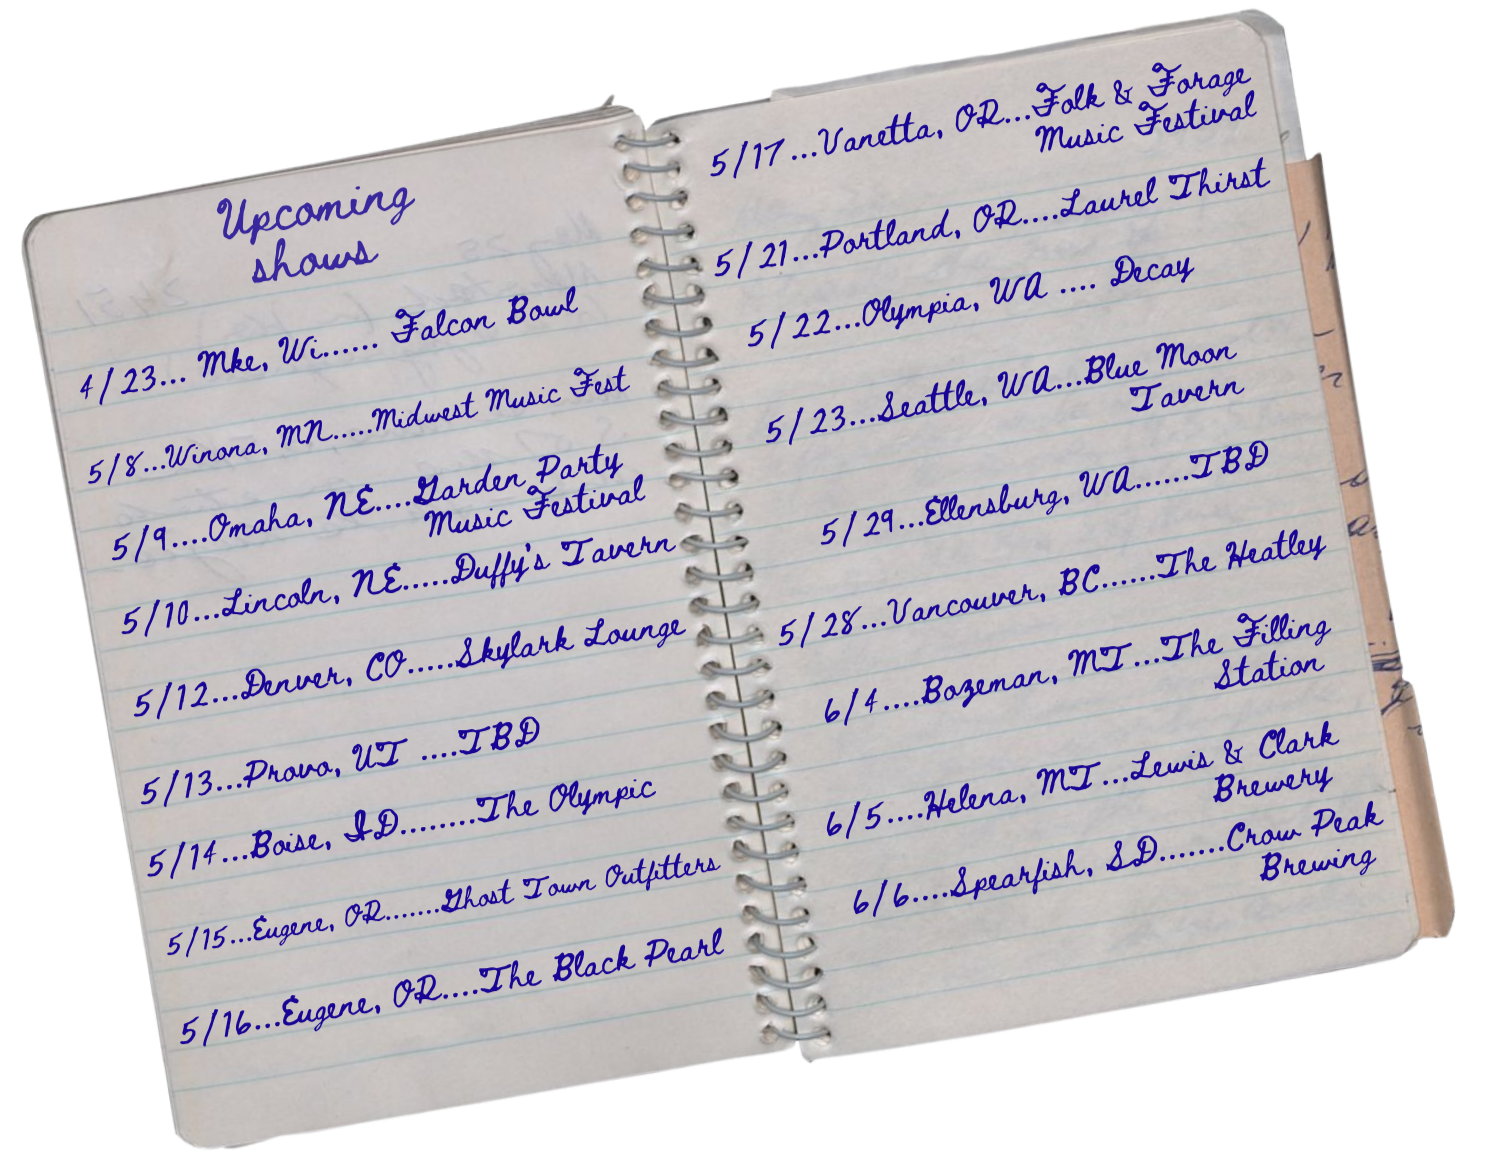 Upcoming
shows
4/23... Mke, Wi...... Falcon Bowl
5/8...Winona, MN.....Midwest Music Fest
5/9....Omaha, NE....Garden Party
Music Festival
5/10...Lincoln, NE.....Duffy's Tavern
5/12...Denver, CO.....Skylark Lounge
5/13...Provo, UT ....TBD
5/14...Boise, ID........The Olympic
5/15...Eugene, OR.......Ghost Town Outfitters
5/16...Eugene, OR....The Black Pearl
5/17...Vanetta, OR...Folk & Forage
Music Festival
5/21...Portland, OR....Laurel Thirst
5/22...Olympia, WA .... Decay
5/23...Seattle, WA...Blue Moon
Tavern
5/29...Ellensburg, WA......TBD
5/28...Vancouver, BC......The Heatley
6/4....Bozeman, MT...The Filling
Station
6/5....Helena, MT...Lewis & Clark
Brewery
6/6....Spearfish, SD.......Crow Peak
Brewing